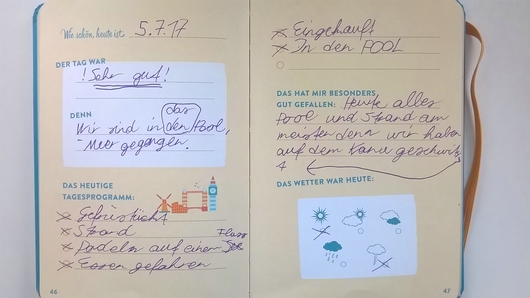 Wie schön, heute ist 5.7.17
DER TAG WAR
! Sehr gut !
DENN
das
Wir sind in den Pool,
Meer gegangen.
DAS HEUTIGE
TAGESPROGRAMM:
Gefrüstückt
Strand
Fluss
Padeln auf einer See
Essen gefahren
46
Eingekauft
In den POOL
DAS HAT MIR BESONDERS
GUT GEFALLEN: Heute alles
Pool und Strand am
meisten denn wir haben
auf dem Kanu geschwitz
t
DAS WETTER WAR HEUTE:
47